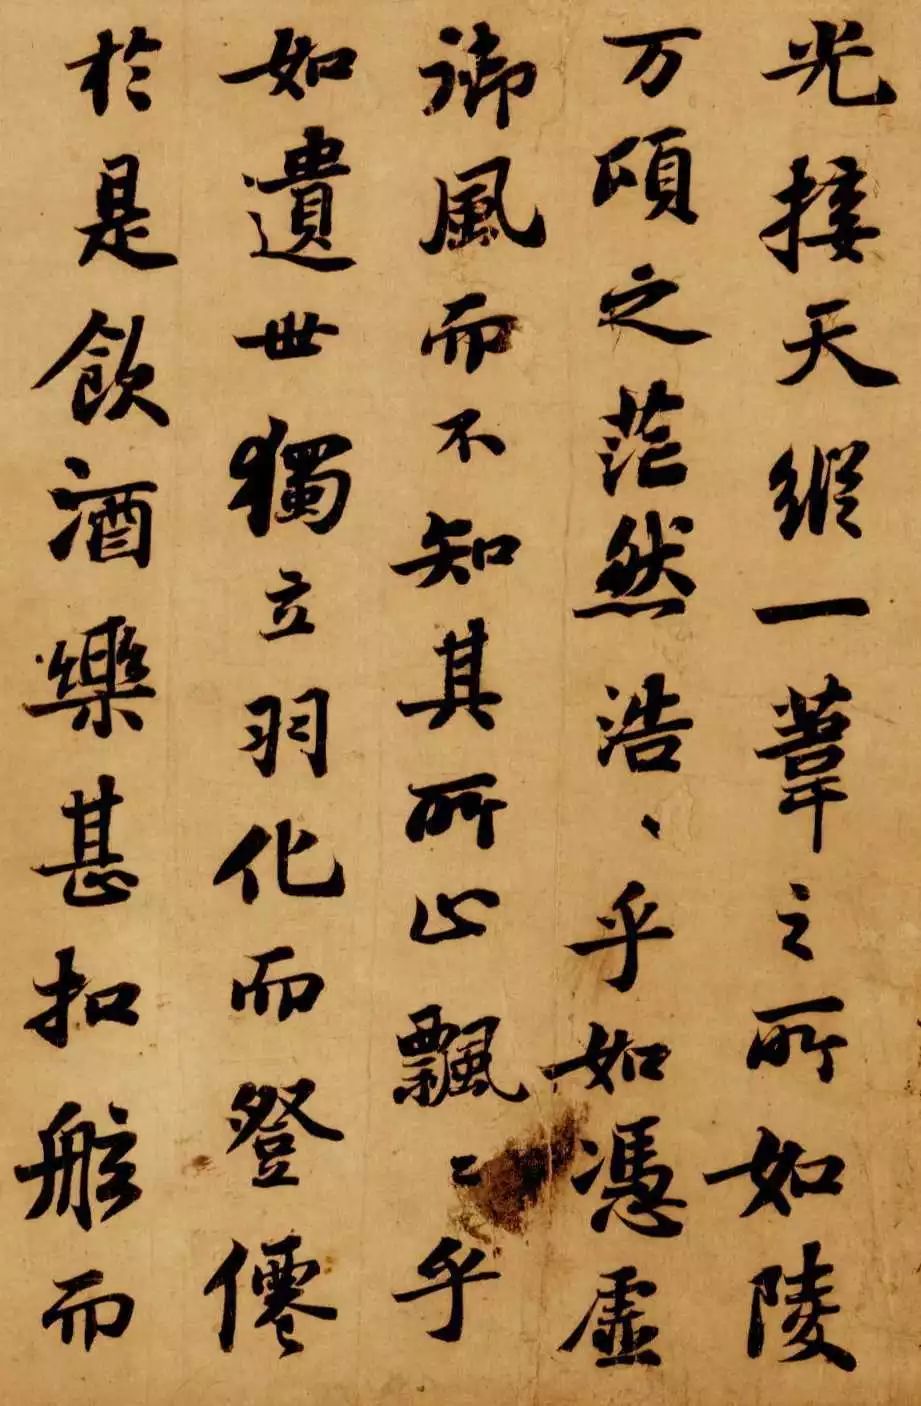 光接天縱一葦之所如陵
万頃之茫然浩、乎如憑虛
御風而不知其所止飄〻乎
如遺世獨立羽化而登僊
於是飲酒樂甚扣舷而